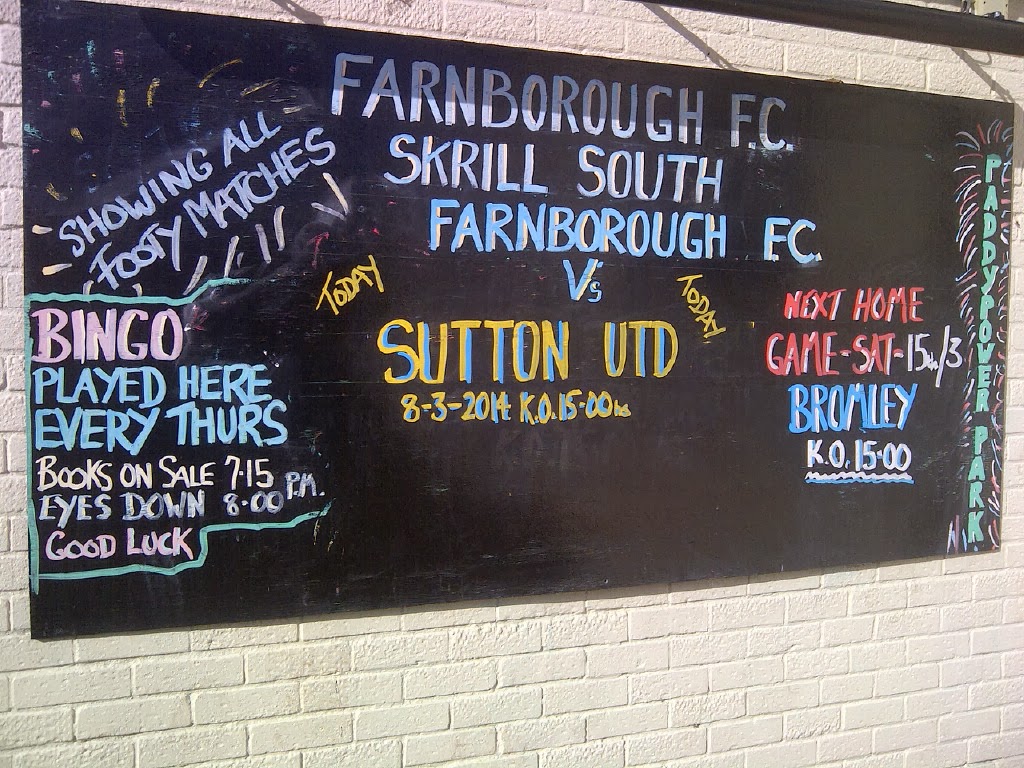 FARNBOROUGH F.C.
SKRILL SOUTH
FARNBOROUGH F.C.
Vs
TODAY
TODAY
SUTTON UTD
8-3-2014 K.O. 15-00hrs
SHOWING ALL
FOOTY MATCHES
BINGO
PLAYED HERE
EVERY THURS
BOOKS ON SALE 7.15
EYES DOWN 8-00 P.M.
GOOD LUCK
NEXT HOME
GAME-SAT-15th/3
BROMLEY
K.O. 15-00
PADDYPOWER PARK